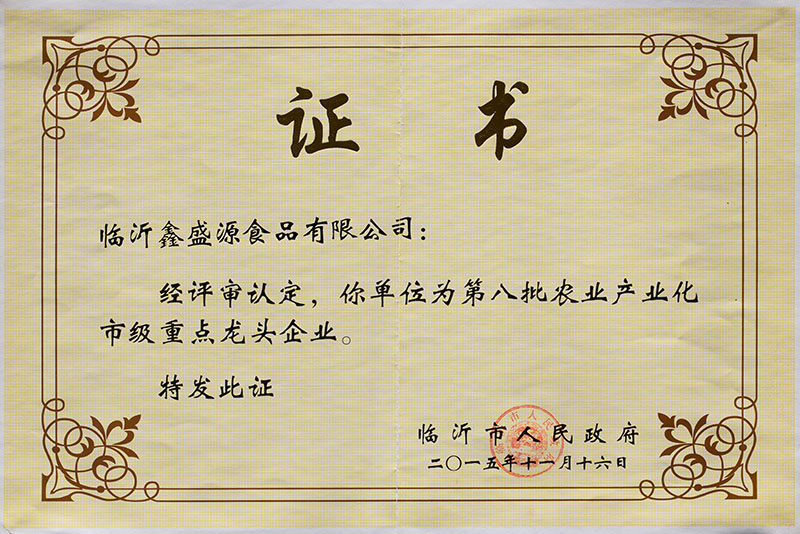 证 书
临沂鑫盛源食品有限公司：
经评审认定，你单位为第八批农业产业化
市级重点龙头企业。
特发此证
临沂市人民政府
二〇一五年十一月十六日